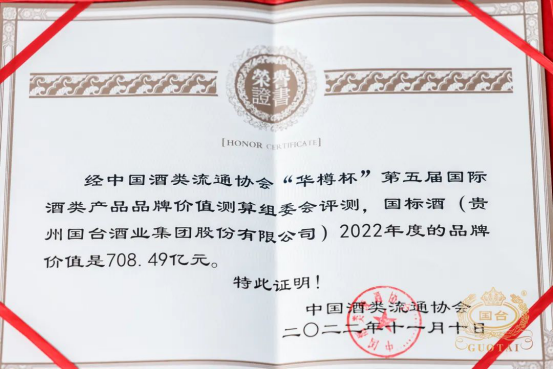 榮譽
證書
[HONOR CERTIFICATE]
经中国酒类流通协会“华樽杯”第五届国际
酒类产品品牌价值测算组委会评测，国标酒（贵
州国台酒业集团股份有限公司）2022年度的品牌
价值是708.49亿元。
特此证明！
中国酒类流通协会
二〇二二年十一月十日
国台
GUOTAI